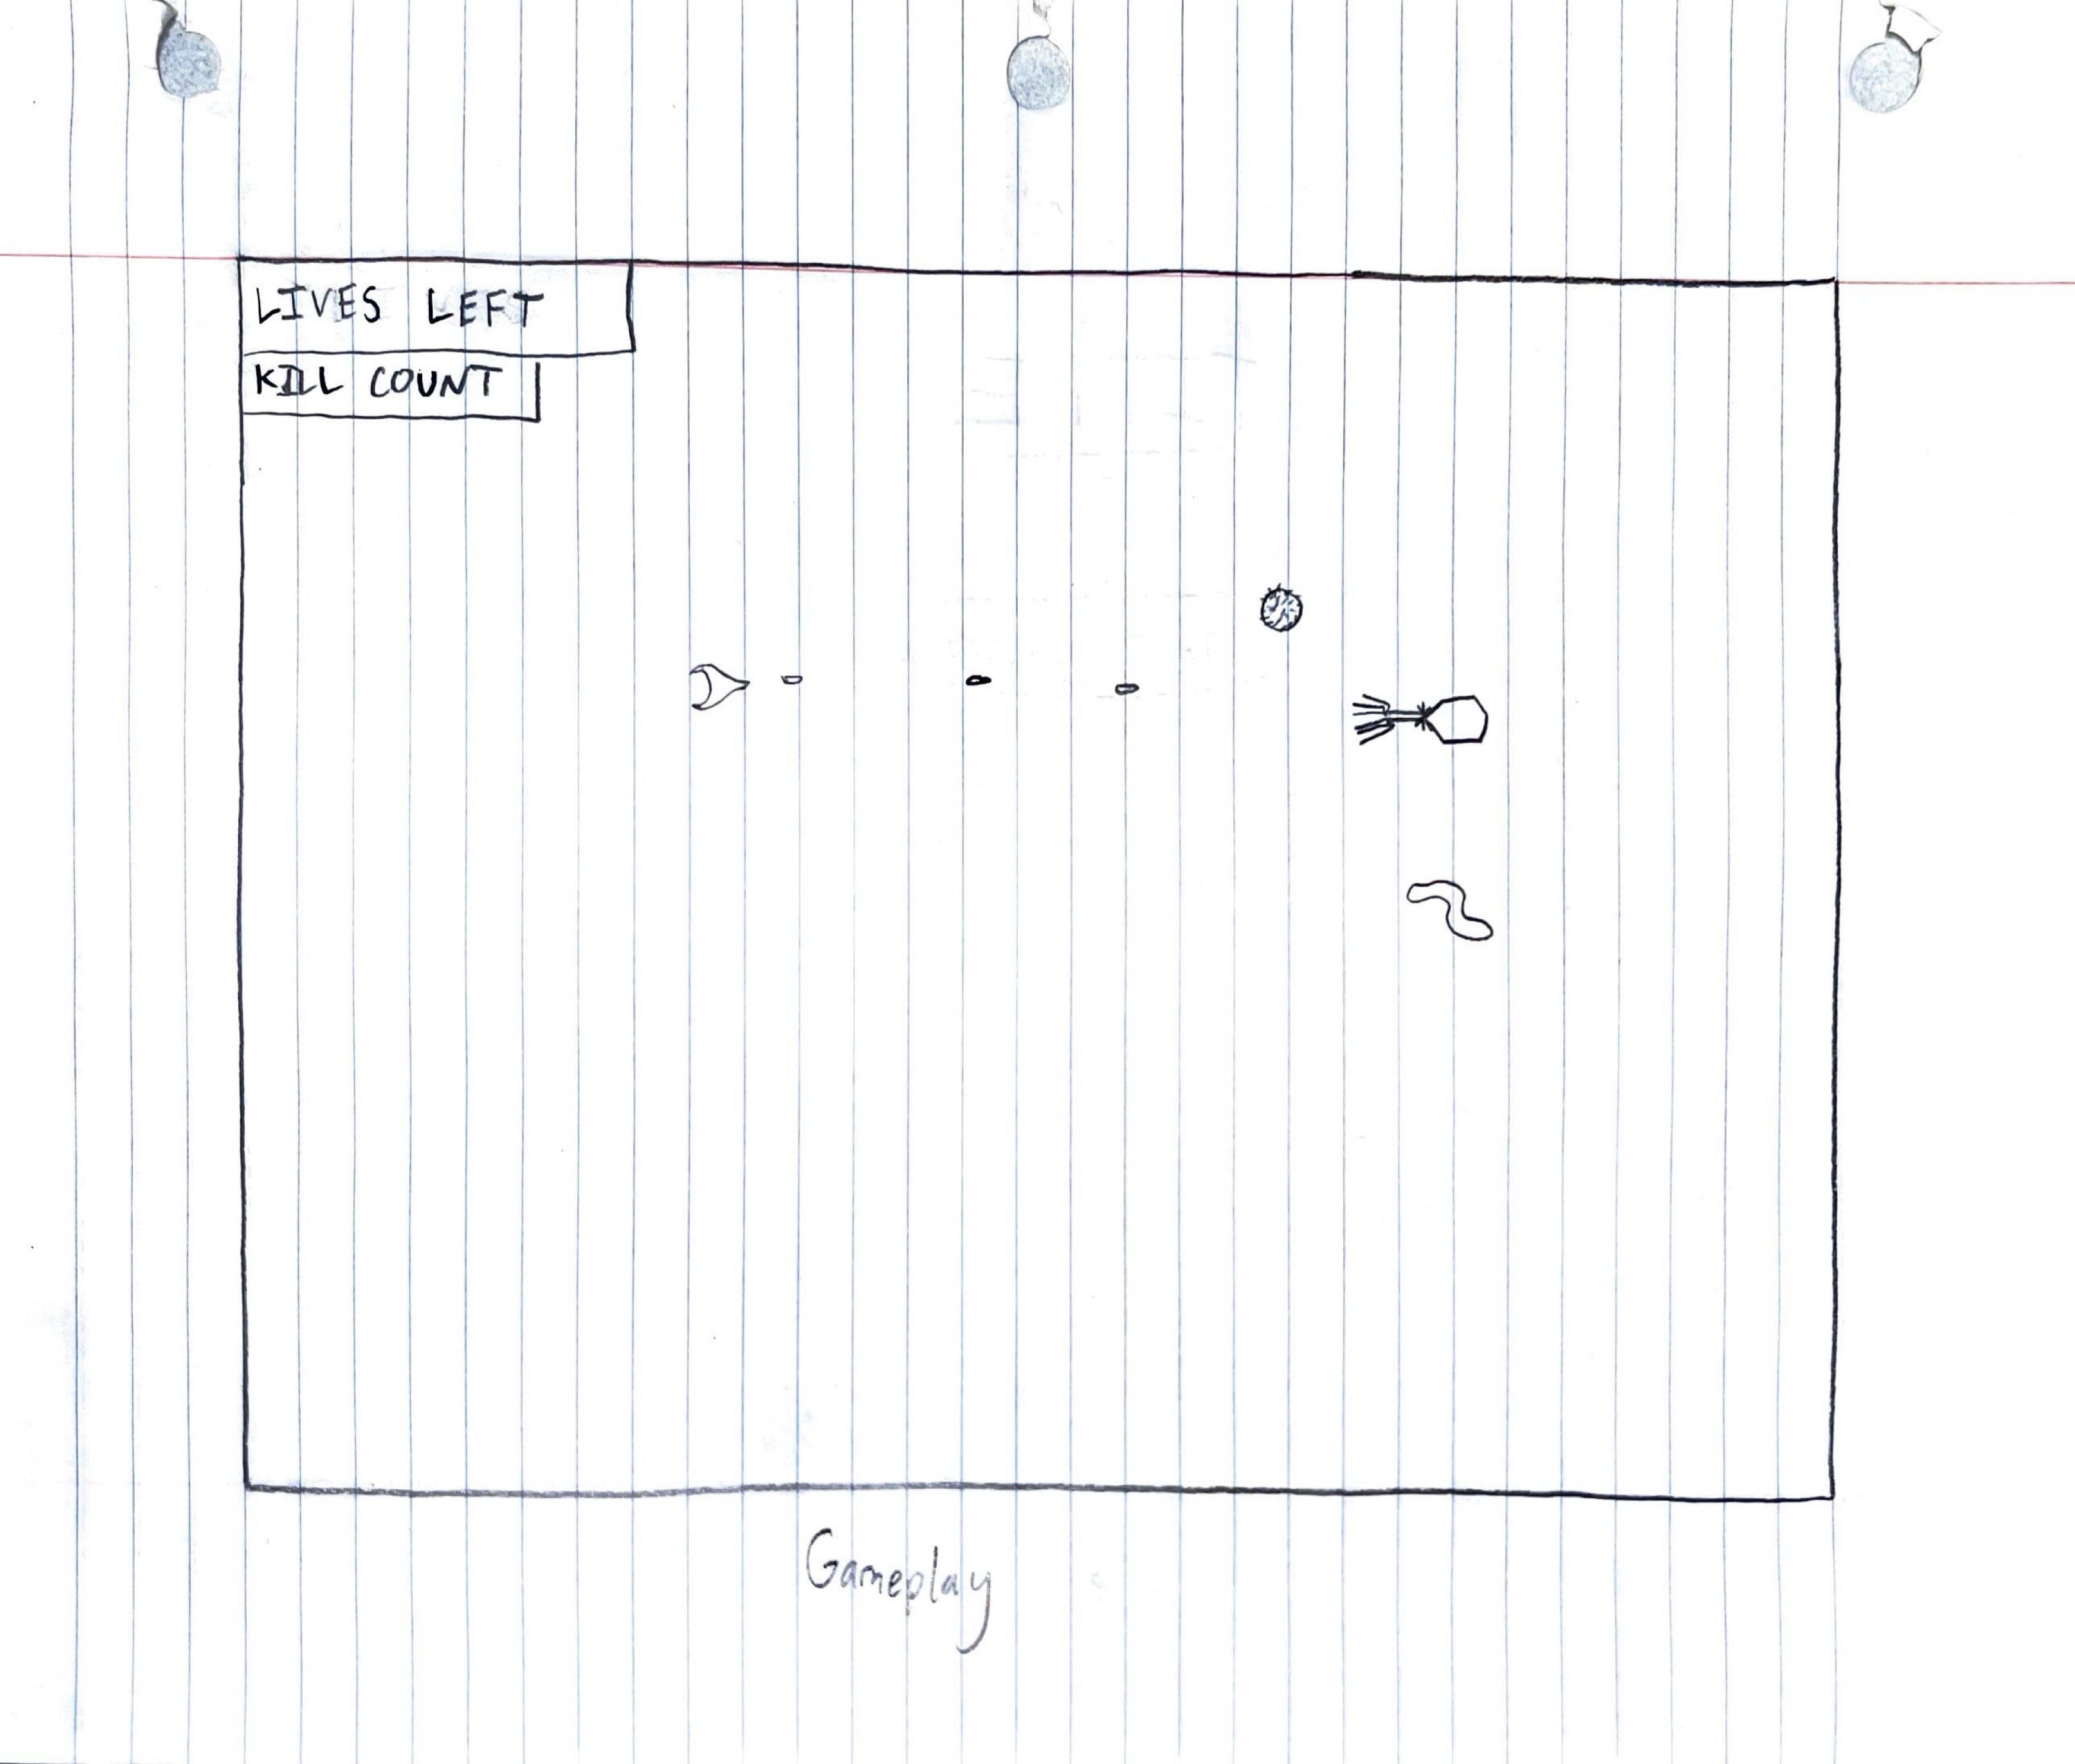 LIVES LEFT
KILL COUNT
Gameplay